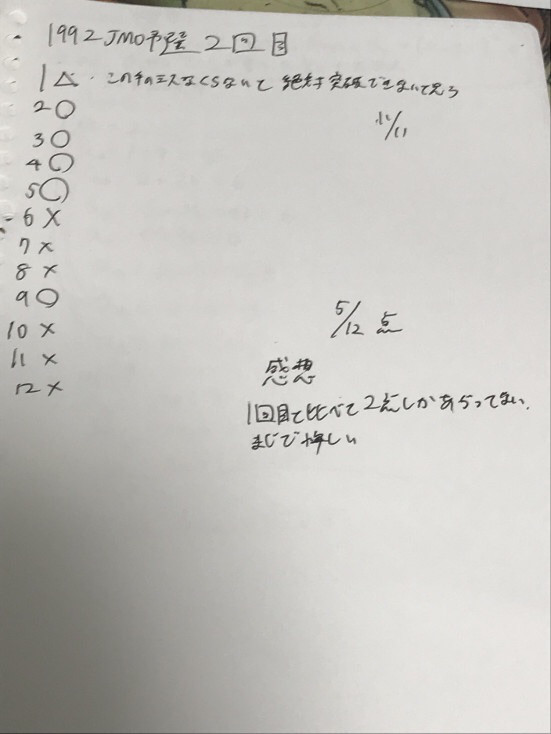 1992 JMO予選 2回目
1 △・この手のミスなくさないと 絶対突破できないと思う
11/11
2 ○
3 ○
4 ○
5 ○
6 ×
7 ×
8 ×
9 ○
10 ×
11 ×
12 ×
5/12 点
感想
1回目と比べて2点しかあがってない。
まじで悔しい